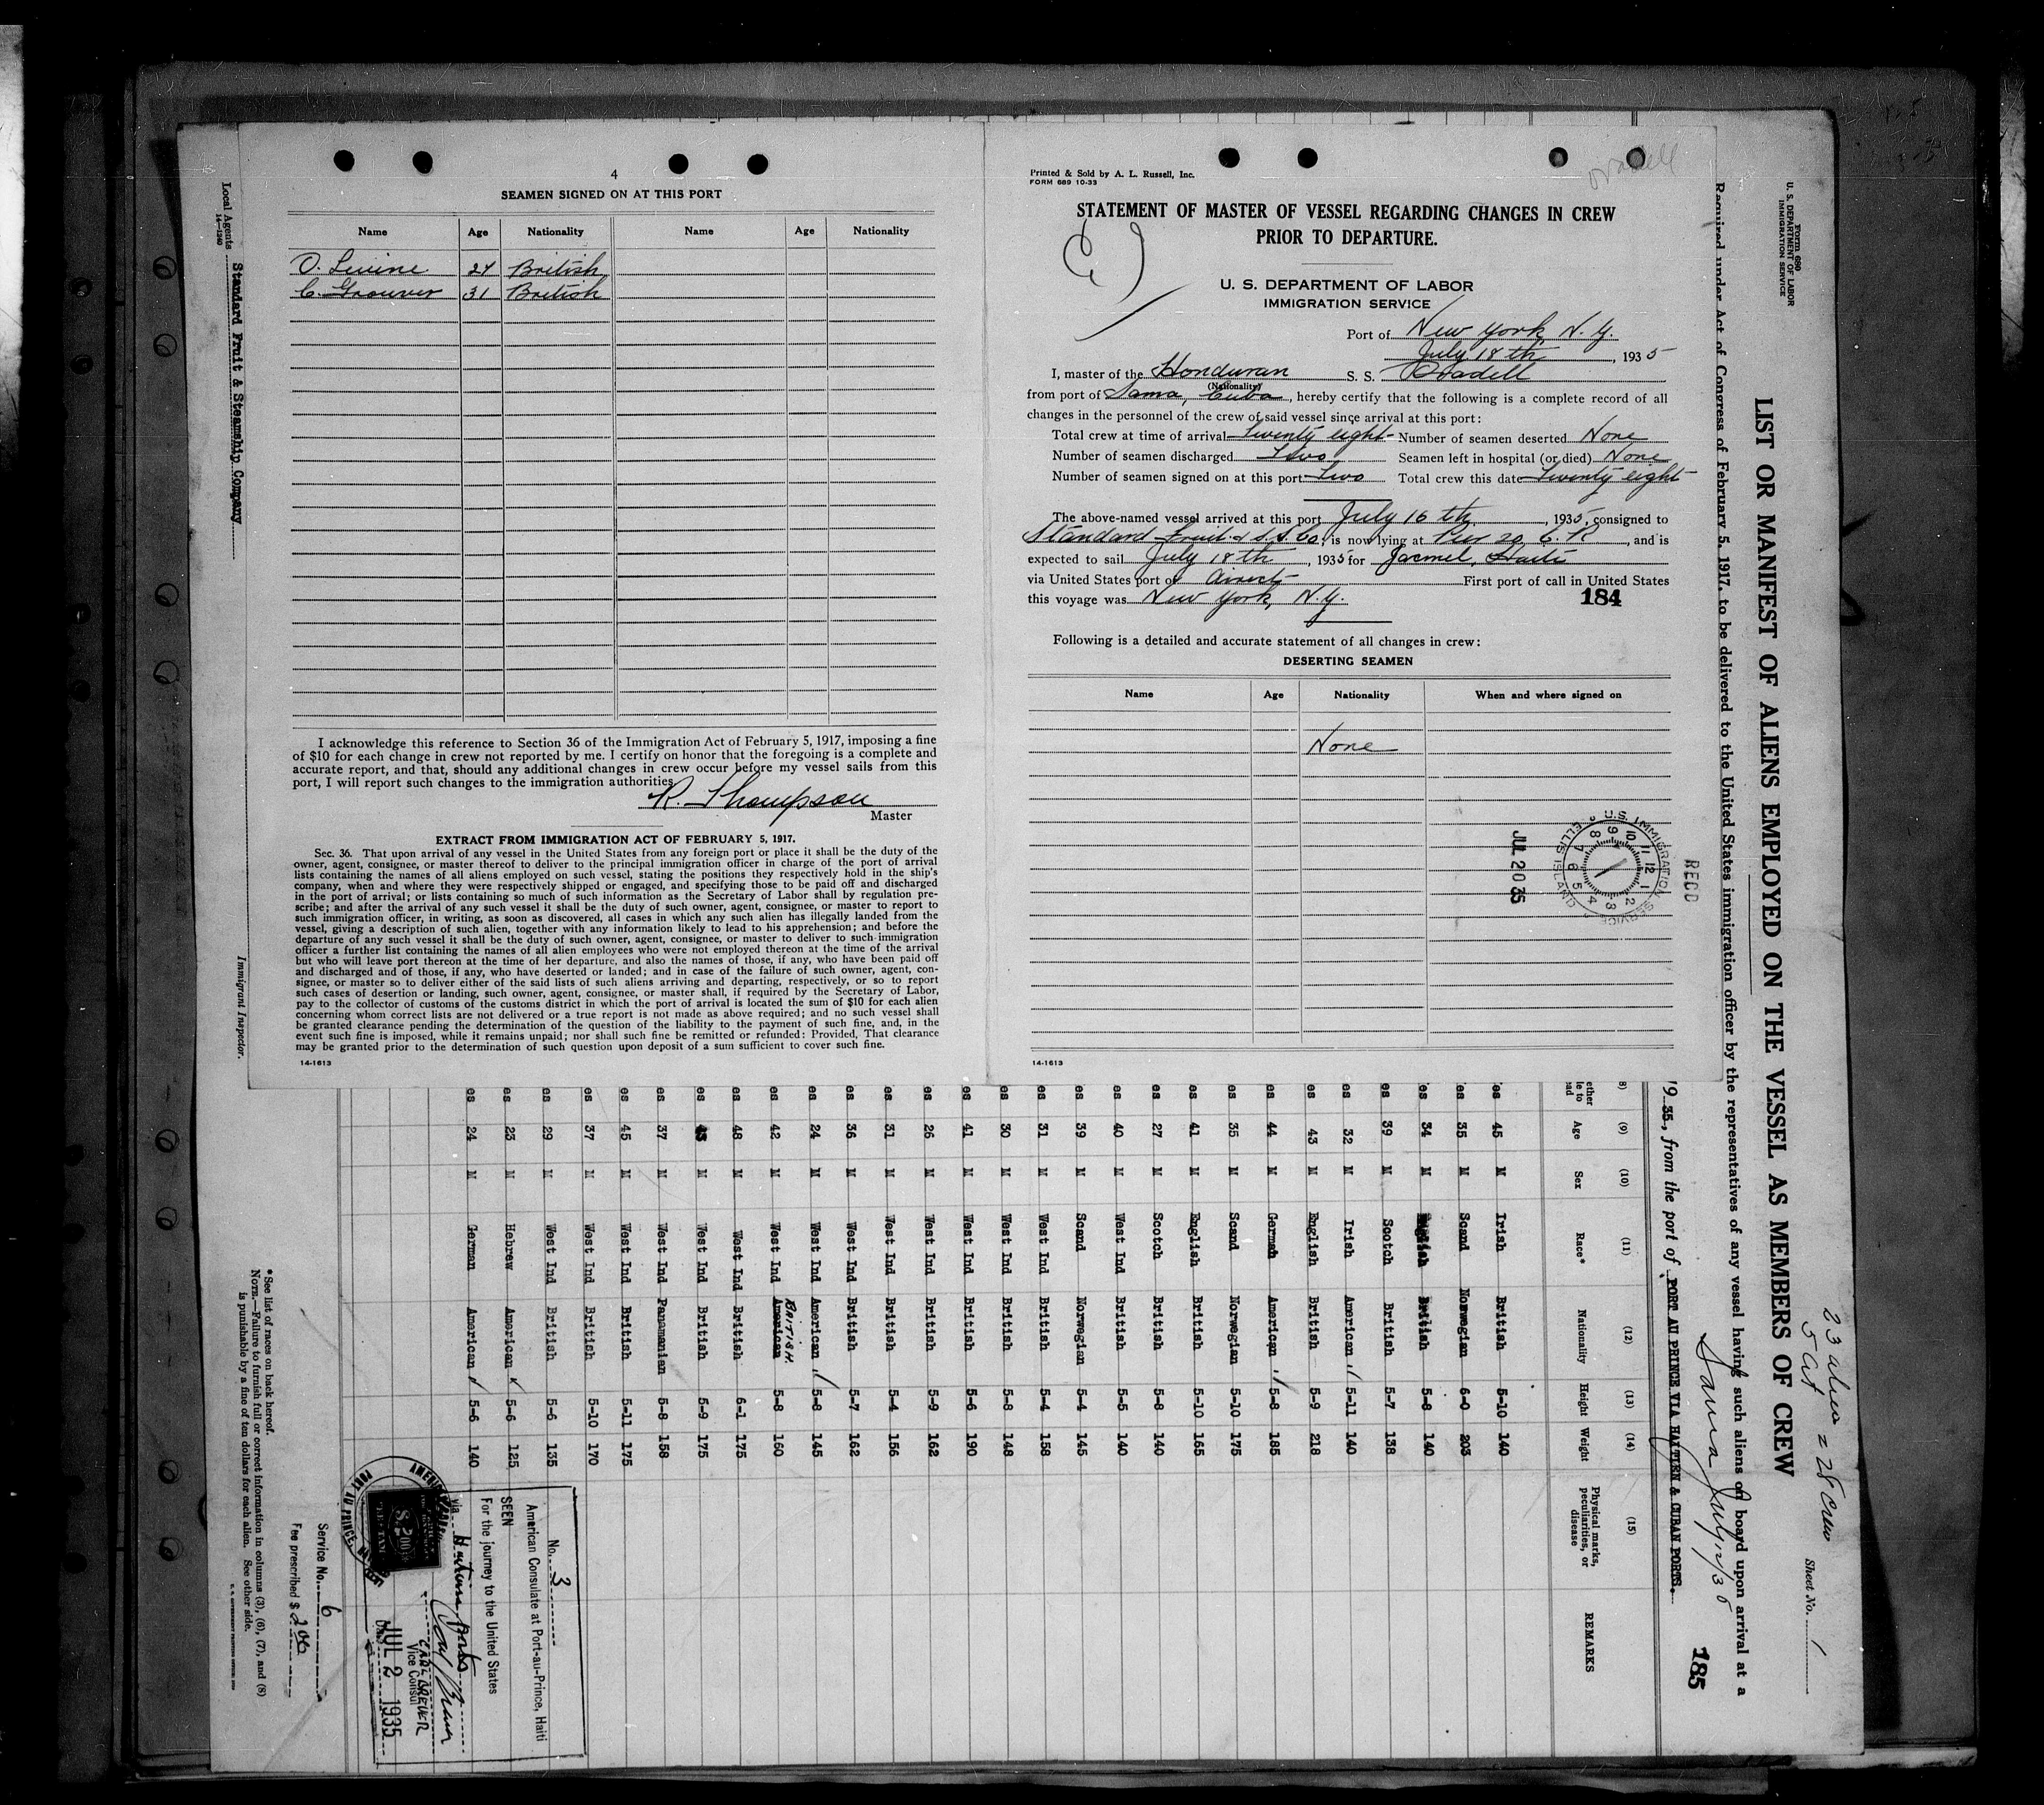 4
SEAMEN SIGNED ON AT THIS PORT
Name Age Nationality Name Age Nationality
O. Levine 24 British
C. Grouver 31 British
I acknowledge this reference to Section 36 of the Immigration Act of February 5, 1917, imposing a fine
of $10 for each change in crew not reported by me. I certify on honor that the foregoing is a complete and
accurate report, and that, should any additional changes in crew occur before my vessel sails from this
port, I will report such changes to the immigration authorities
R. Thompson
Master
EXTRACT FROM IMMIGRATION ACT OF FEBRUARY 5, 1917.
Sec. 36. That upon arrival of any vessel in the United States from any foreign port or place it shall be the duty of the
owner, agent, consignee, or master thereof to deliver to the principal immigration officer in charge of the port of arrival
lists containing the names of all aliens employed on such vessel, stating the positions they respectively hold in the ship's
company, when and where they were respectively shipped or engaged, and specifying those to be paid off and discharged
in the port of arrival; or lists containing so much of such information as the Secretary of Labor shall by regulation pre-
scribe; and after the arrival of any such vessel it shall be the duty of such owner, agent, consignee, or master to report to
such immigration officer, in writing, as soon as discovered, all cases in which any such alien has illegally landed from the
vessel, giving a description of such alien, together with any information likely to lead to his apprehension; and before the
departure of any such vessel it shall be the duty of such owner, agent, consignee, or master to deliver to such immigration
officer a further list containing the names of all alien employees who were not employed thereon at the time of the arrival
but who will leave port thereon at the time of her departure, and also the names of those, if any, who have been paid off
and discharged and of those, if any, who have deserted or landed; and in case of the failure of such owner, agent, con-
signee, or master so to deliver either of the said lists of such aliens arriving and departing, respectively, or so to report
such cases of desertion or landing, such owner, agent, consignee, or master shall, if required by the Secretary of Labor,
pay to the collector of customs of the customs district in which the port of arrival is located the sum of $10 for each alien
concerning whom correct lists are not delivered or a true report is not made as above required; and no such vessel shall
be granted clearance pending the determination of the question of the liability to the payment of such fine, and, in the
event such fine is imposed, while it remains unpaid; nor shall such fine be remitted or refunded: Provided, That clearance
may be granted prior to the determination of such question upon deposit of a sum sufficient to cover such fine.
14-1613
Printed & Sold by A. L. Russell, Inc.
FORM 689 10-33
Oradell
STATEMENT OF MASTER OF VESSEL REGARDING CHANGES IN CREW
PRIOR TO DEPARTURE.
U. S. DEPARTMENT OF LABOR
IMMIGRATION SERVICE
Port of New York, N. Y.
July 18th, 1935
I, master of the Honduran S. S. Oradell
(Nationality)
from port of Sama, Cuba, hereby certify that the following is a complete record of all
changes in the personnel of the crew of said vessel since arrival at this port:
Total crew at time of arrival Twenty eight Number of seamen deserted None
Number of seamen discharged Two Seamen left in hospital (or died) None
Number of seamen signed on at this port Two Total crew this date Twenty eight
The above-named vessel arrived at this port July 16th, 1935, consigned to
Standard Fruit & S.S. Co., is now lying at Pier 20, E. R., and is
expected to sail July 18th, 1935 for Jacmel, Haiti
via United States port of direct First port of call in United States
this voyage was New York, N.Y.
184
Following is a detailed and accurate statement of all changes in crew:
DESERTING SEAMEN
Name Age Nationality When and where signed on
None
14-1613
REC'D
U.S. IMMIGRATION SERVICE ELLIS ISLAND
JUL 20 35
Local Agents Standard Fruit & Steamship Company
14-1240
Immigrant Inspector.
Form 680
U. S. DEPARTMENT OF LABOR
IMMIGRATION SERVICE
23 aliens = 28 crew
5 Cit
Sheet No. 1
LIST OR MANIFEST OF ALIENS EMPLOYED ON THE VESSEL AS MEMBERS OF CREW
Required under Act of Congress of February 5, 1917, to be delivered to the United States immigration officer by the representatives of any vessel having such aliens on board upon arrival at a
Sama July 12/35
185
19 35, from the port of PORT AU PRINCE VIA HAITIEN & CUBAN PORTS.
(9) (10) (11) (12) (13) (14) (15)
Age Sex Race* Nationality Height Weight Physical marks, peculiarities, or disease REMARKS
es 45 M Irish British 5-10 140
es 35 M Scand Norwegian 6-0 203
es 34 M English British 5-8 140
es 39 M Scotch British 5-7 138
es 32 M Irish American 5-11 140
es 43 M English British 5-9 218
es 44 M German American 5-8 185
es 35 M Scand Norwegian 5-10 175
es 41 M English British 5-10 165
es 27 M Scotch British 5-8 140
es 40 M West Ind British 5-5 140
es 39 M Scand Norwegian 5-4 145
es 31 M West Ind British 5-4 158
es 30 M West Ind British 5-8 148
es 41 M West Ind British 5-6 190
es 26 M West Ind British 5-9 162
es 31 M West Ind British 5-4 156
es 36 M West Ind British 5-7 162
es 24 M West Ind American 5-8 145
es 42 M West Ind American BRITISH. 5-8 160
es 48 M West Ind British 6-1 175
es 43 M West Ind British 5-9 175
es 37 M West Ind Panamanian 5-8 158
es 45 M West Ind British 5-11 175
es 37 M West Ind British 5-10 170
es 29 M West Ind British 5-6 135
es 23 M Hebrew American 5-6 125
es 24 M German American 5-6 140
No. 3
American Consulate at Port-au-Prince, Haiti
SEEN
For the journey to the United States
via Haitien ports
CARL BREUER
Vice Consul
JUL 2 1935
Service No. 6
Fee prescribed $ 2.00
* See list of races on back hereof.
NOTE.—Failure to furnish full or correct information in columns (3), (6), (7), and (8)
is punishable by a fine of ten dollars for each alien. See other side.